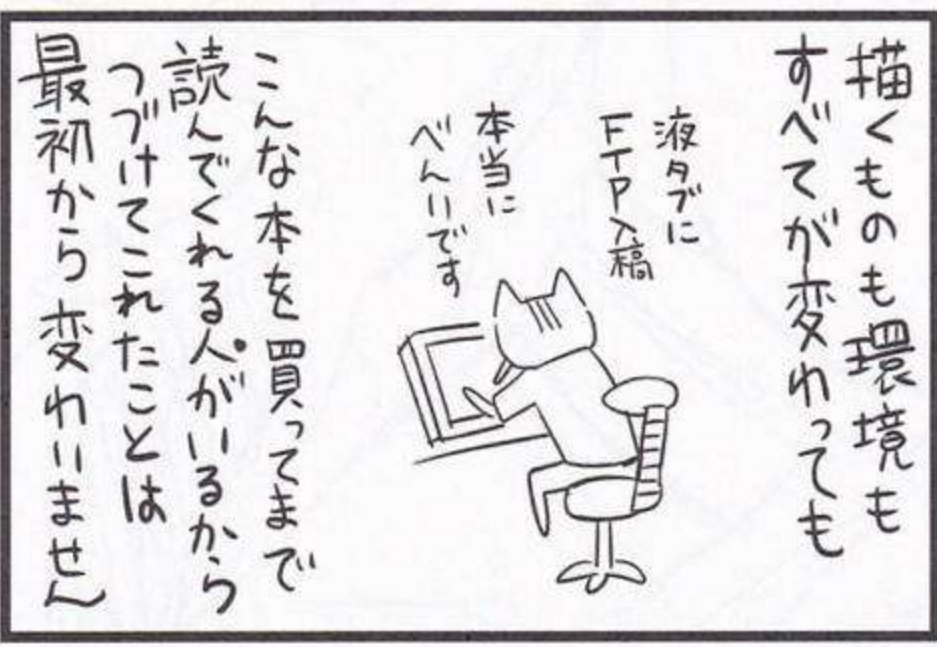 描くものも環境も
すべてが変わっても
液タブに
FTP入稿
本当に
べんりです
こんな本を買ってまで
読んでくれる人がいるから
つづけてこれたことは
最初から変わりません